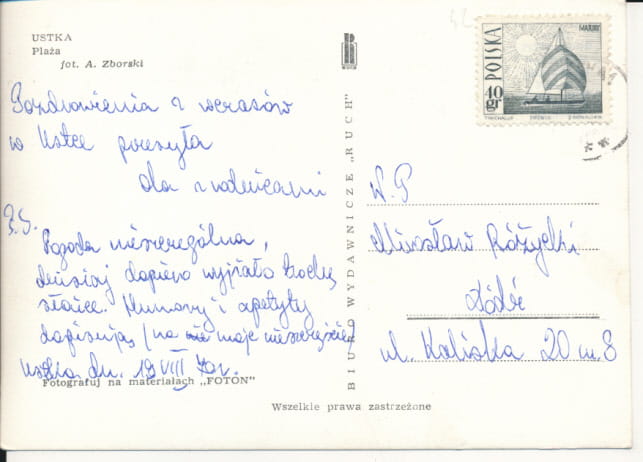 USTKA
Plaża
fot. A. Zborski
Pozdrowienia z wczasów
w Ustce przesyła
Ola z rodzicami
P.S.
Pogoda nieszczególna,
dzisiaj dopiero wyjrzało trochę
słońce. Humory i apetyty
dopisują, (na moje nieszczęście)
Ustka, dn. 19 VIII 70 r.
Fotografuj na materiałach „FOTON"
BIURO WYDAWNICZE „RUCH"
Wszelkie prawa zastrzeżone
POLSKA
MAZURY
40 gr
W.P
Mirosław Różycki
Łódź
ul. Kaliska 20 m. 8